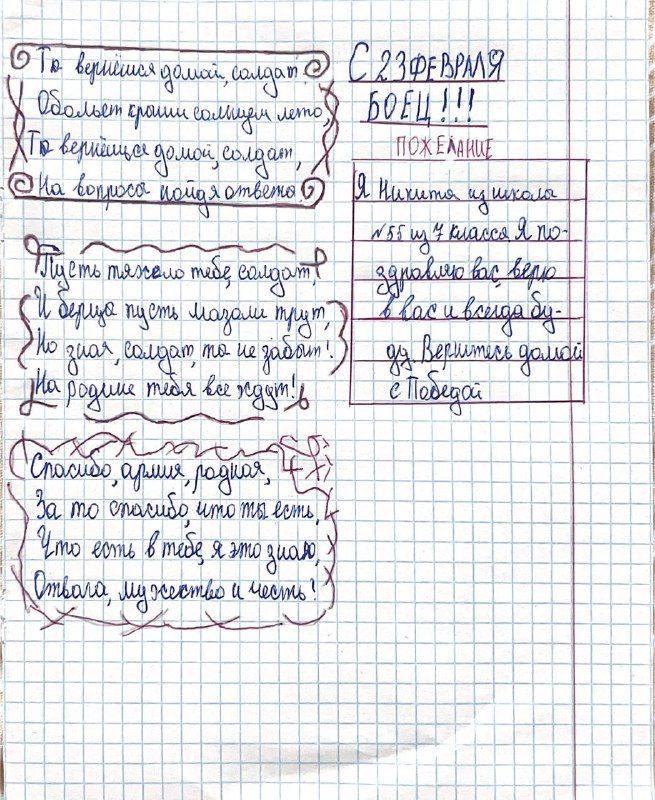 Ты вернёшся домой, солдат.
Обольет крыши солнцем лето,
Ты вернёшься домой, солдат,
На вопросы найдя ответы.
Пусть тяжело тебе, солдат,
И берцы пусть мазоли трут,
Но зная, солдат, ты не забыт!
На родине тебя все ждут!
Спасибо, армия, родная,
За то спасибо, что ты есть,
Что есть в тебе, я это знаю,
Отвага, мужество и честь!
С 23 ФЕВРАЛЯ
БОЕЦ!!!
ПОЖЕЛАНИЕ
Я Никита из школы
№55 из 7 класса Я по-
здравляю вас, верю
в вас и всегда бу-
ду. Вернитесь домой
с Победой